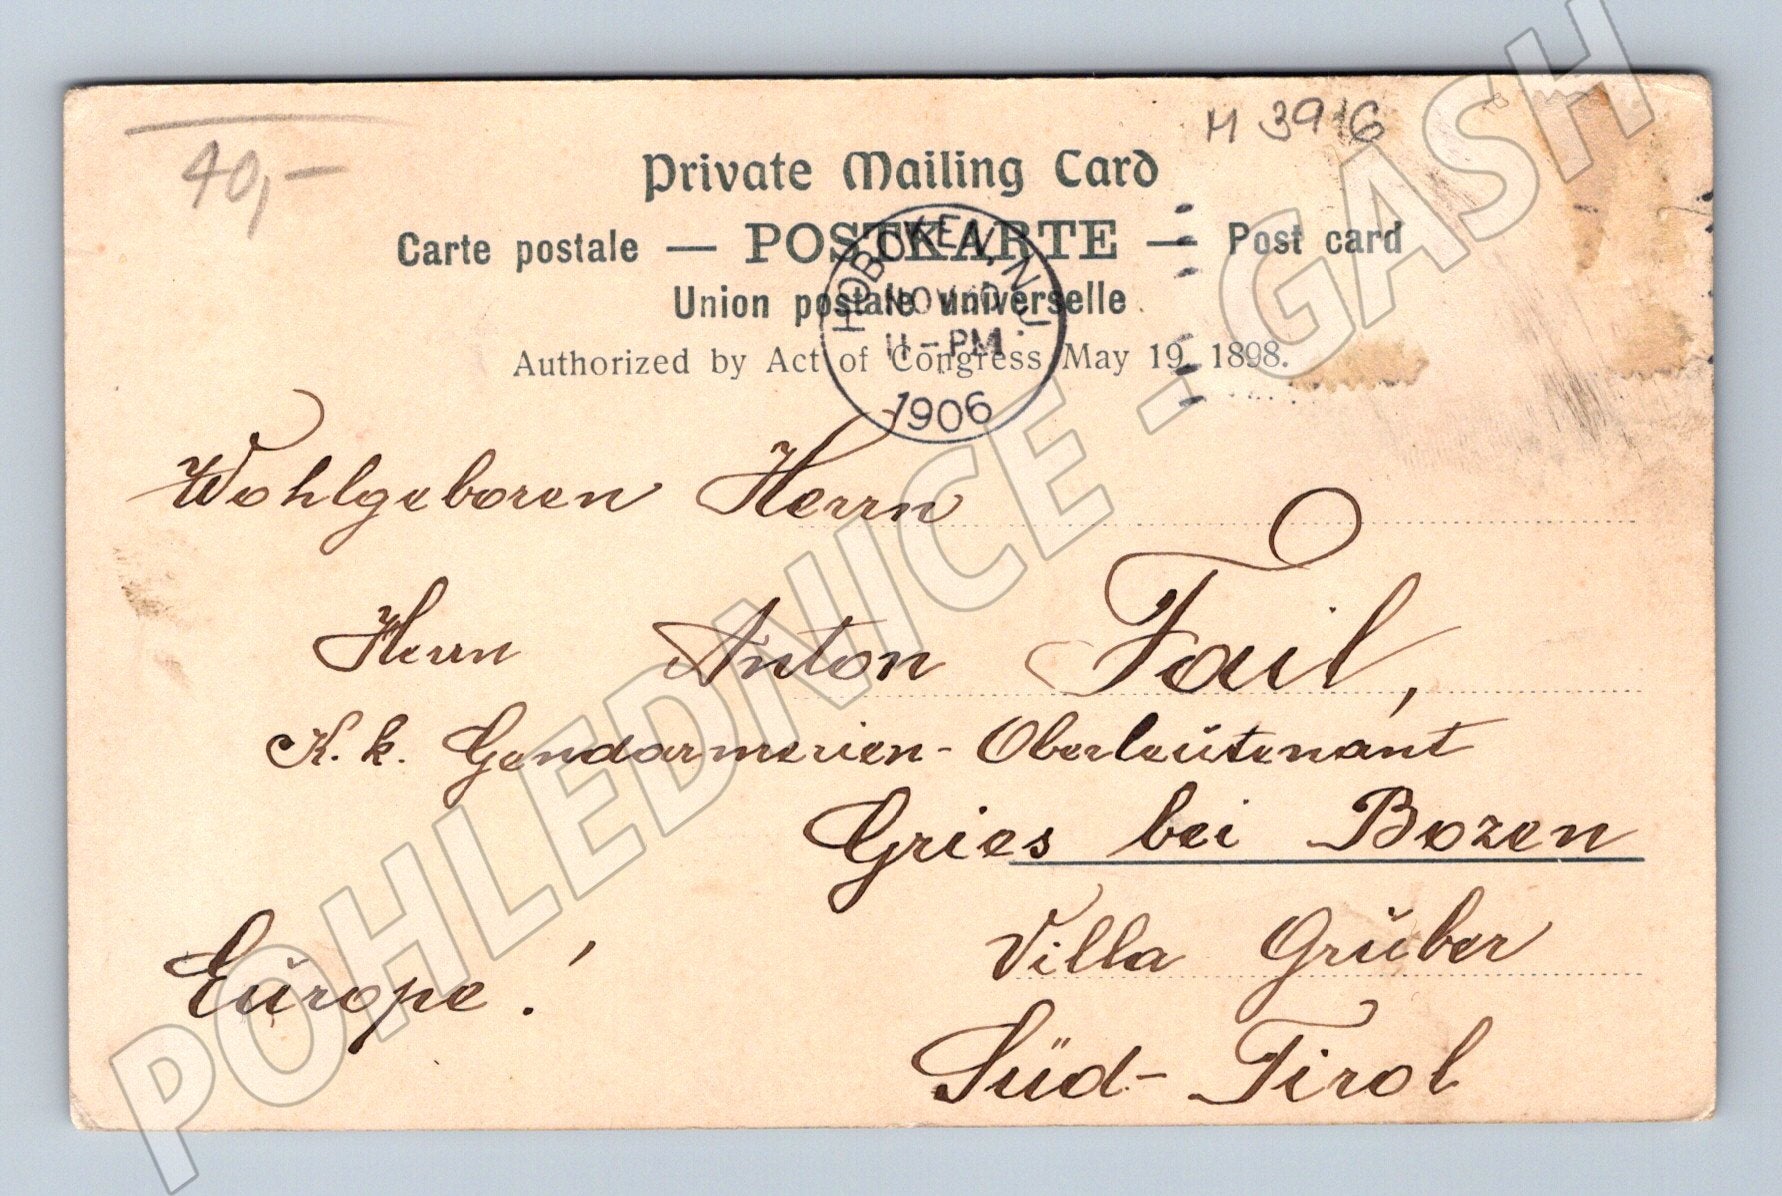 M 3916
40,-
Private Mailing Card
Carte postale — POSTKARTE — Post card
Union postale universelle
Authorized by Act of Congress May 19, 1898.
HOBOKEN, N.J.
NOV
11-PM
1906
Wohlgeboren Herrn
Herrn Anton Fail,
K. k. Gendarmerien-Oberleutenant
Gries bei Bozen
Villa Gruber
Europe!
Süd-Tirol
POHLEDNICE - GASH